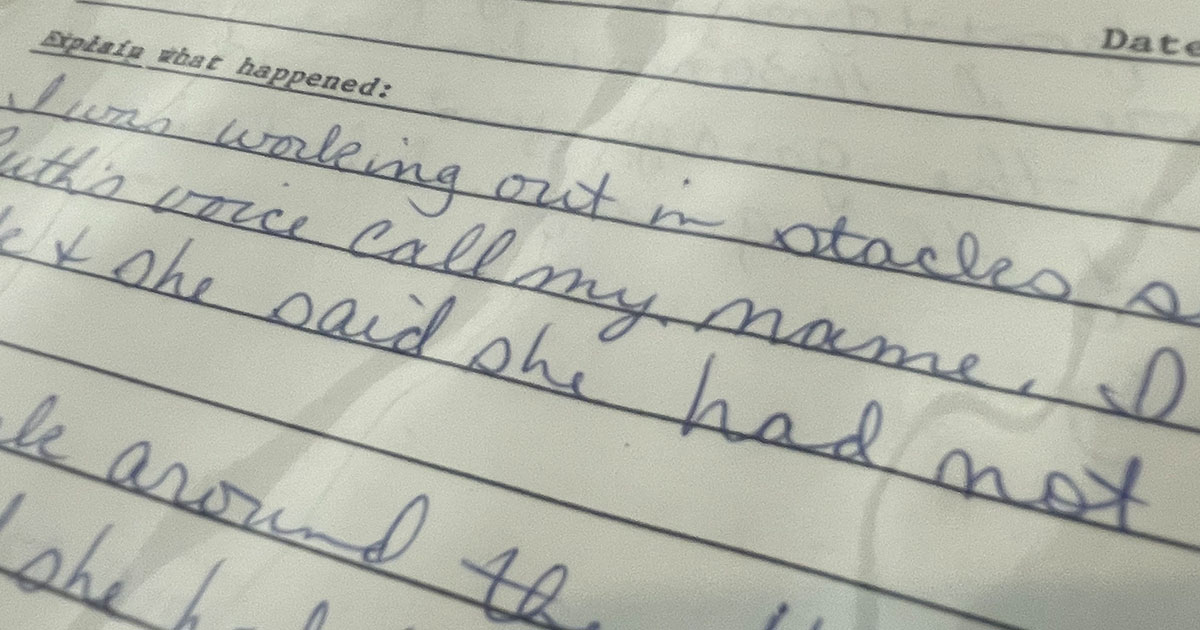 Date
Explain what happened:
I was working out in stacks
Ruth's voice call my name. I
& she said she had not
around the
she